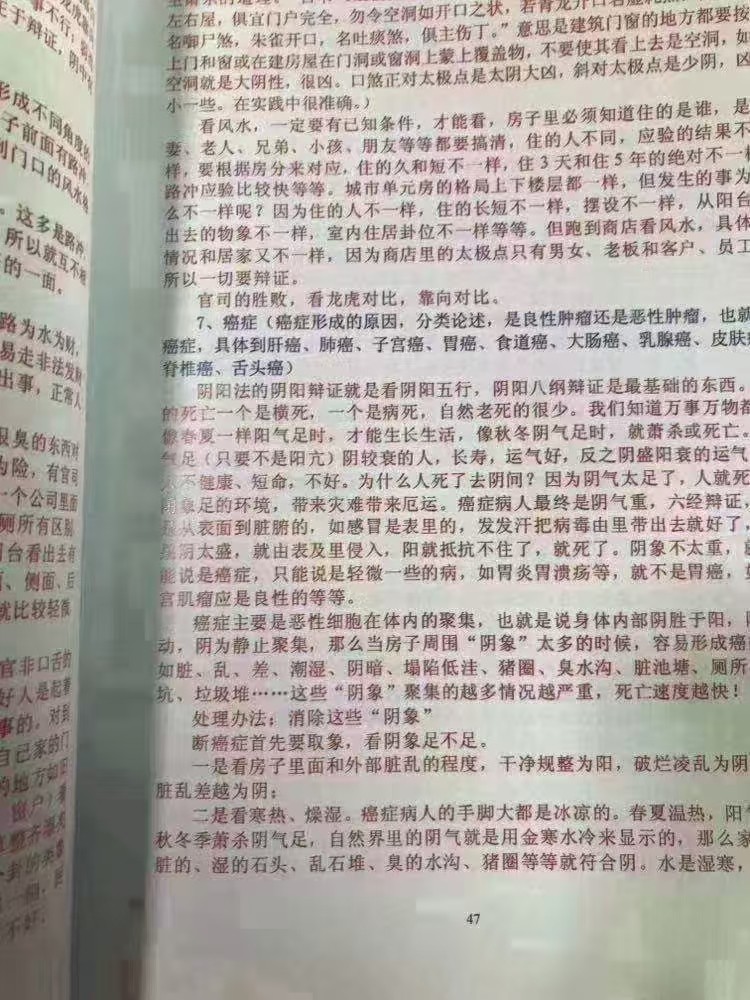 事不行;
于辩证,阴中
形成不同角度的
子前面有路冲
到门口的风水
。这多是路冲,
所以就互不
的一面。
路为水为财,
易走非法发财
出事,正常人
很臭的东西对
为险,有官司
一个公司里面
厕所有区别
阳台看出去有
面、侧面、后
就比较轻微
官非口舌的
好人是起着
事的。对到
自己家的门
的地方如旧
不好;
左右屋,俱宜门户完全,勿令空洞如开口之状,若青龙开口
名啣尸煞,朱雀开口,名吐痰煞,俱主伤丁。”意思是建筑门窗的地方都要按
上门和窗或在建房屋在门洞或窗洞上蒙上覆盖物,不要使其看上去是空洞,如
空洞就是大阴性,很凶。口煞正对太极点是太阴大凶,斜对太极点是少阴,凶
小一些。在实践中很准确。)
看风水,一定要有已知条件,才能看,房子里必须知道住的是谁,是
妻、老人、兄弟、小孩、朋友等等都要搞清,住的人不同,应验的结果不
样,要根据房分来对应,住的久和短不一样,住 3 天和住 5 年的绝对不一
路冲应验比较快等等。城市单元房的格局上下楼层都一样,但发生的事为
么不一样呢?因为住的人不一样,住的长短不一样,摆设不一样,从阳台
出去的物象不一样,室内住居卦位不一样等等。但跑到商店看风水,具体
情况和居家又不一样,因为商店里的太极点只有男女、老板和客户、员工
所以一切要辩证。
官司的胜败,看龙虎对比,靠向对比。
7、癌症(癌症形成的原因,分类论述,是良性肿瘤还是恶性肿瘤,也就
癌症,具体到肝癌、肺癌、子宫癌、胃癌、食道癌、大肠癌、乳腺癌、皮肤
脊椎癌、舌头癌)
阴阳法的阴阳辩证就是看阴阳五行,阴阳八纲辩证是最基础的东西。
的死亡一个是横死,一个是病死,自然老死的很少。我们知道万事万物都
像春夏一样阳气足时,才能生长生活,像秋冬阴气足时,就萧杀或死亡。
气足(只要不是阳亢)阴较衰的人,长寿,运气好,反之阴盛阳衰的运气
人不健康、短命,不好。为什么人死了去阴间?因为阴气太足了,人就死
阴象足的环境,带来灾难带来厄运。癌症病人最终是阴气重,六经辩证,
是从表面到脏腑的,如感冒是表里的,发发汗把病毒由里带出去就好了,
果阴太盛,就由表及里侵入,阳就抵抗不住了,就死了。阴象不太重,就
能说是癌症,只能说是轻微一些的病,如胃炎胃溃疡等,就不是胃癌,如
宫肌瘤应是良性的等等。
癌症主要是恶性细胞在体内的聚集,也就是说身体内部阴胜于阳,阳
动,阴为静止聚集,那么当房子周围“阴象”太多的时候,容易形成癌症
如脏、乱、差、潮湿、阴暗、塌陷低洼、猪圈、臭水沟、脏池塘、厕所
坑、垃圾堆……这些“阴象”聚集的越多情况越严重,死亡速度越快!
处理办法;消除这些“阴象”
断癌症首先要取象,看阴象足不足。
一是看房子里面和外部脏乱的程度,干净规整为阳,破烂凌乱为阴
脏乱差越为阴;
二是看寒热、燥湿。癌症病人的手脚大都是冰凉的。春夏温热,阳气
秋冬季萧杀阴气足,自然界里的阴气就是用金寒水冷来显示的,那么家
脏的、湿的石头、乱石堆、臭的水沟、猪圈等等就符合阴。水是湿寒,
47